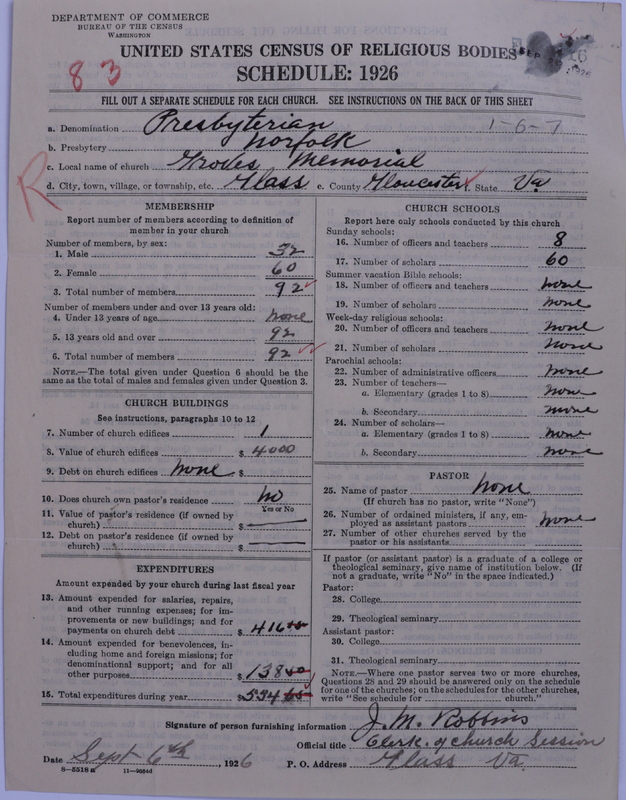 DEPARTMENT OF COMMERCE
BUREAU OF THE CENSUS
WASHINGTON
UNITED STATES CENSUS OF RELIGIOUS BODIES
SCHEDULE: 1926
83
SEP
1926
FILL OUT A SEPARATE SCHEDULE FOR EACH CHURCH. SEE INSTRUCTIONS ON THE BACK OF THIS SHEET
a. Denomination Presbyterian 1-6-7
b. Presbytery Norfolk
c. Local name of church Groves Memorial
R
d. City, town, village, or township, etc. Glass e. County Gloucester f. State Va
MEMBERSHIP
Report number of members according to definition of
member in your church
Number of members, by sex:
1. Male 32
2. Female 60
3. Total number of members 92
Number of members under and over 13 years old:
4. Under 13 years of age none
5. 13 years old and over 92
6. Total number of members 92
NOTE.—The total given under Question 6 should be the
same as the total of males and females given under Question 3.
CHURCH BUILDINGS
See instructions, paragraphs 10 to 12
7. Number of church edifices 1
8. Value of church edifices $ 4000
9. Debt on church edifices none $
10. Does church own pastor's residence no
Yes or No
11. Value of pastor's residence (if owned by
church) $
12. Debt on pastor's residence (if owned by
church) $
EXPENDITURES
Amount expended by your church during last fiscal year
13. Amount expended for salaries, repairs,
and other running expenses; for im-
provements or new buildings; and for
payments on church debt $ 416
14. Amount expended for benevolences, in-
cluding home and foreign missions; for
denominational support; and for all
other purposes $ 138
15. Total expenditures during year $ 554
CHURCH SCHOOLS
Report here only schools conducted by this church
Sunday schools:
16. Number of officers and teachers 8
17. Number of scholars 60
Summer vacation Bible schools:
18. Number of officers and teachers none
19. Number of scholars none
Week-day religious schools:
20. Number of officers and teachers none
21. Number of scholars none
Parochial schools:
22. Number of administrative officers none
23. Number of teachers—
a. Elementary (grades 1 to 8) none
b. Secondary none
24. Number of scholars—
a. Elementary (grades 1 to 8) none
b. Secondary none
PASTOR
25. Name of pastor none
(If church has no pastor, write "None")
26. Number of ordained ministers, if any, em-
ployed as assistant pastors none
27. Number of other churches served by the
pastor or his assistants
If pastor (or assistant pastor) is a graduate of a college or
theological seminary, give name of institution below. (If
not a graduate, write "No" in the space indicated.)
Pastor:
28. College
29. Theological seminary
Assistant pastor:
30. College
31. Theological seminary
NOTE.—Where one pastor serves two or more churches,
Questions 28 and 29 should be answered only on the schedule
for one of the churches; on the schedules for the other churches,
write "See schedule for church."
Signature of person furnishing information J. M. Robbins
Official title Clerk of church Session
Date Sept 6th, 1926 P. O. Address Glass Va.
8—5518a 11—9064d